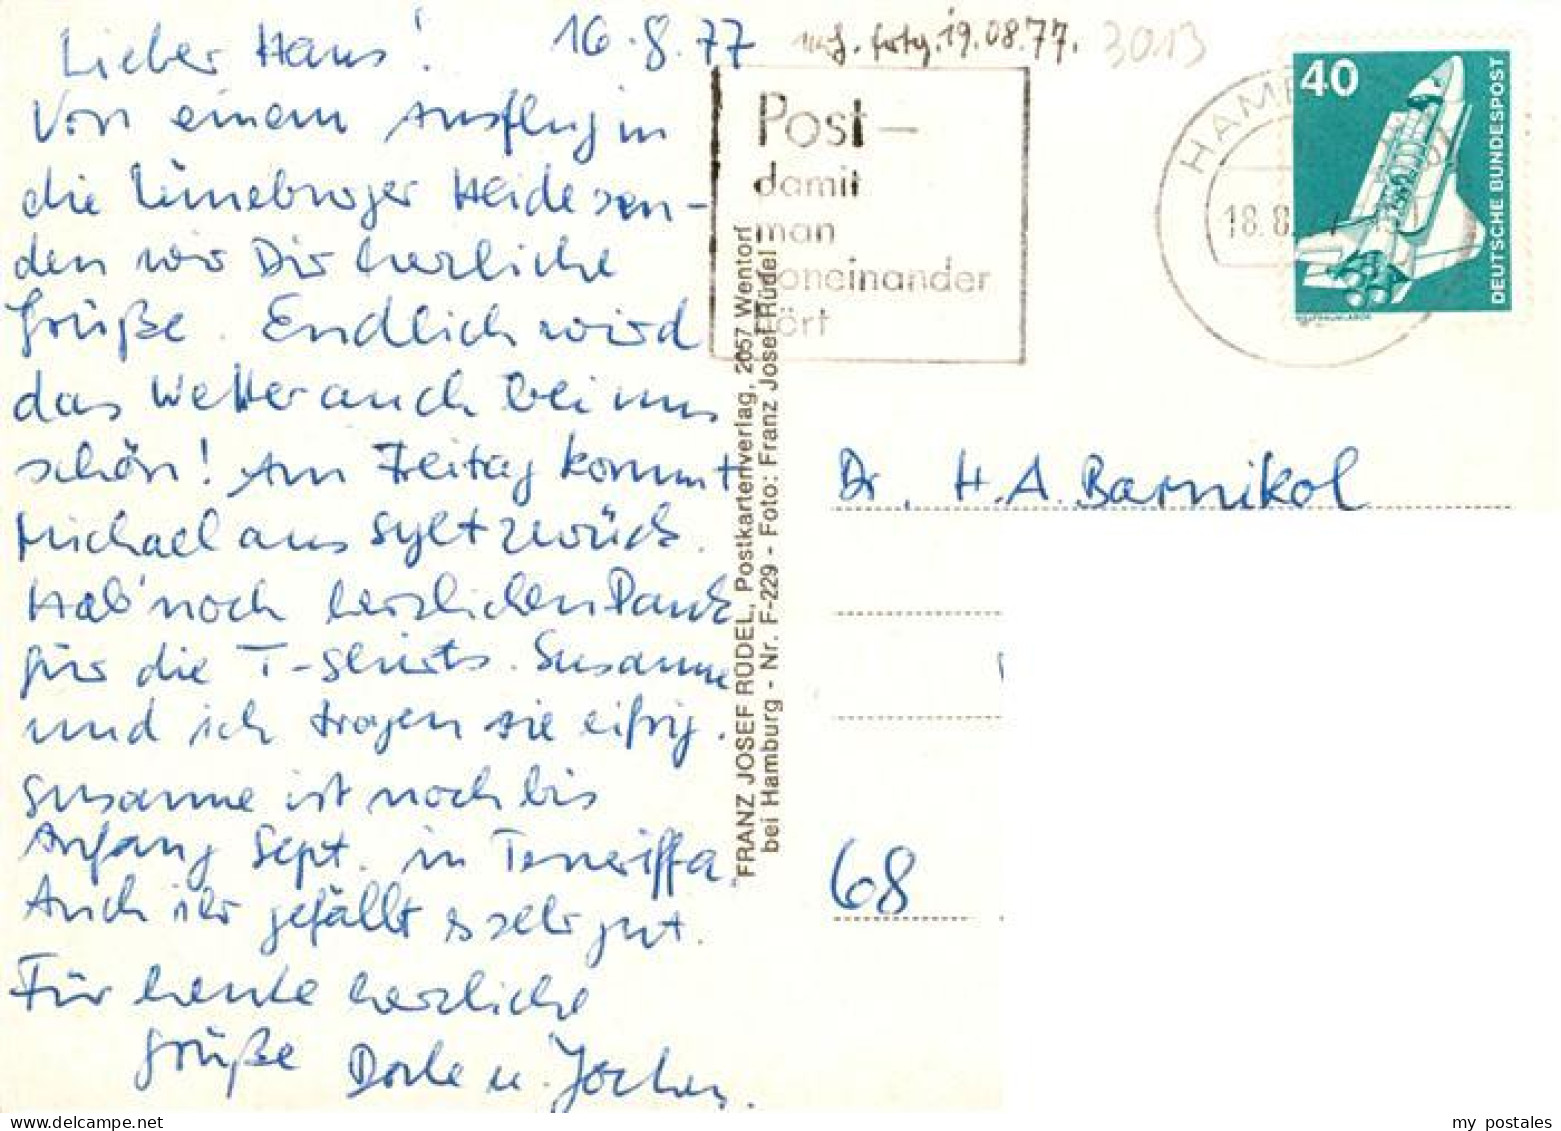 Lieber Hans! 16.8.77
19.08.77. 3013
Von einem Ausflug in
die Lüneburger Heide sen-
den wir Dir herzliche
Grüße. Endlich wird
das Wetter auch bei uns
schön! Am Freitag kommt
Michael aus Sylt zurück.
Hab' noch herzlichen Dank
für die T-Shirts. Susanne
und ich tragen sie eifrig.
Susanne ist noch bis
Anfang Sept. in Teneriffa.
Auch ihr gefällt es sehr gut.
Für heute herzliche
Grüße Dorle u. Jochen.
Post-
damit
man
voneinander
hört
HAMB
18.8.
40
DEUTSCHE BUNDESPOST
FRANZ JOSEF RÜDEL, Postkartenverlag, 2057 Wentorf
bei Hamburg - Nr. F-229 - Foto: Franz Josef Rüdel
Dr. H. A. Barnikol
68
my postales